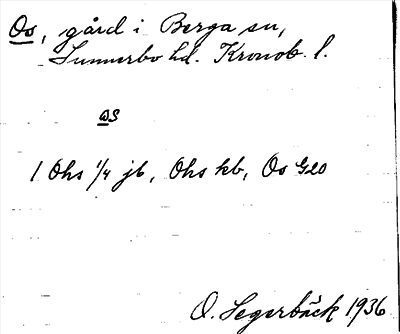 Os, gård i Berga sn,
Sunnerbo hd. Kronob. l.
ωs
1 Ohs 1/4 jb, Ohs kb, Os G20
O. Segerbäck 1936